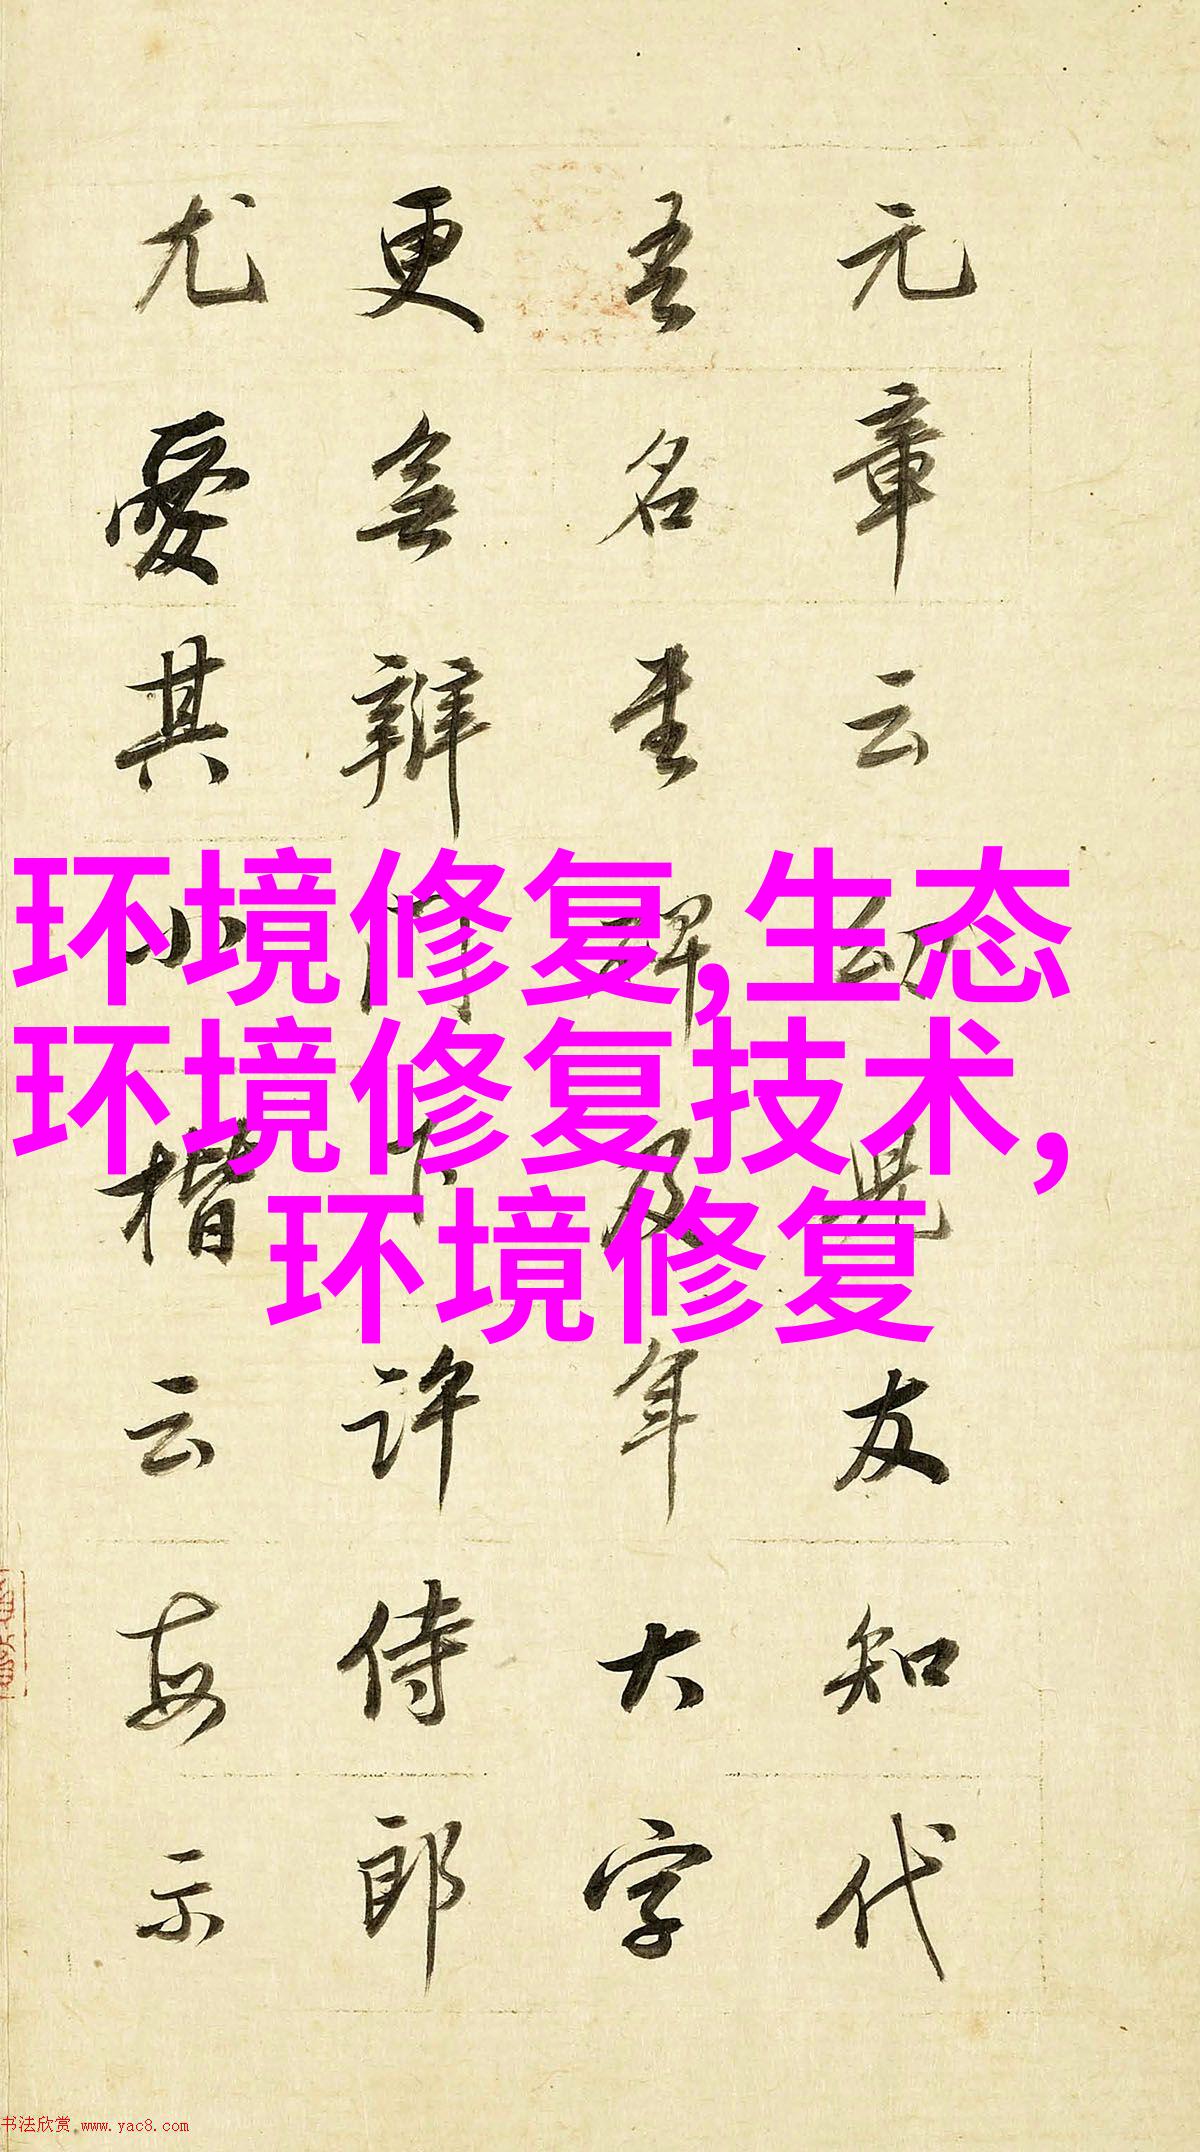 元章云幼兒友知代
吾名書碑及年大字
更無辨門下許侍郎
尤愛其小楷云每示
环境修复,生态
环境修复技术,
环境修复
书法欣赏 www.yac8.com